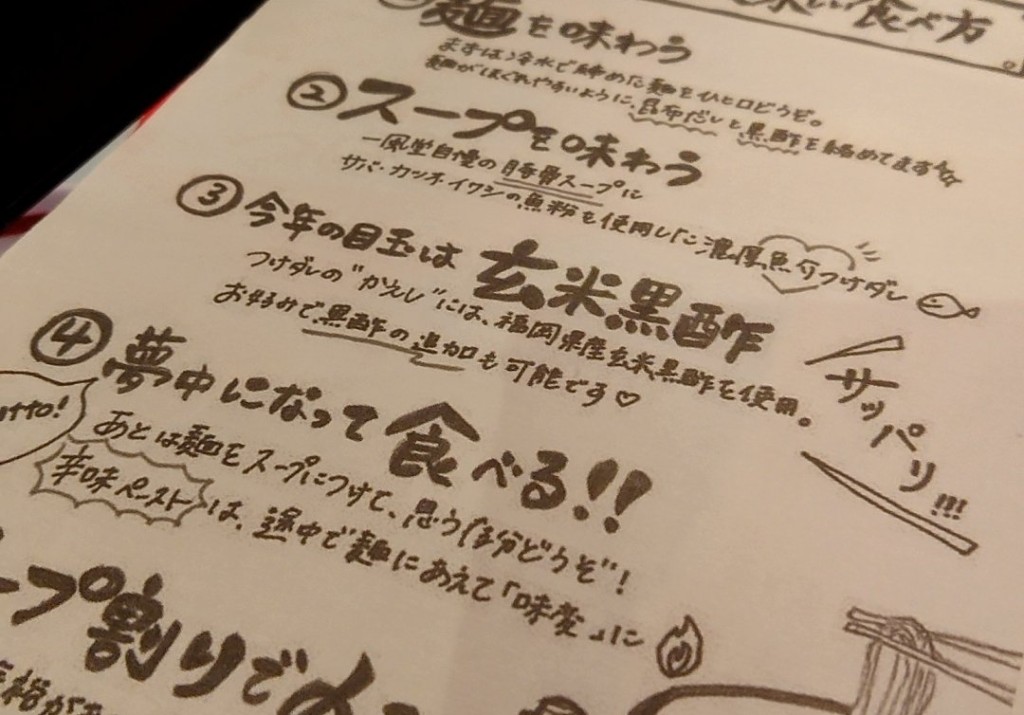 味しい食べ方
麺を味わう
まずは冷水で締めた麺をひと口どうぞ。
麺がほぐれやすいように、昆布だしと黒酢を絡めてます☆
② スープを味わう
一風堂自慢の豚骨スープに
サバ・カツオ・イワシの魚粉を使用した濃厚魚介つけダレ
③ 今年の目玉は 玄米黒酢
つけダレの"かえし"には、福岡県産玄米黒酢を使用。
お好みで黒酢の追加も可能です♡
サッパリ!!!
④ 夢中になって食べる!!
あとは麺をスープにつけて、思う存分どうぞ!
辛味ペーストは、途中で麺にあえて「味変」に
ープ割りで